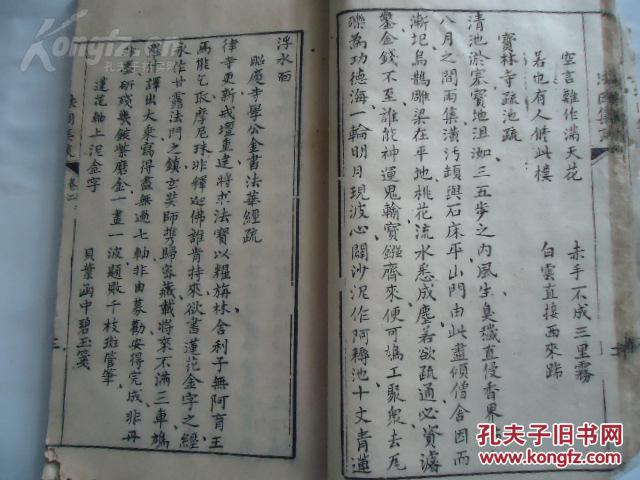 空言難作滿天花
赤手不成三里霧
若也有人修此樓
白雲直接西來路
寶林寺疏池疏
清池淤塞寶地沮洳三五步之內風生臭穢直侵香東
八月之間雨集潢汚頻與石床平山門由此盡傾僧舍因而
漸圮烏鵲雕梁在平地桃花流水悉成塵若欲疏通必資濬
鑿金錢不至誰能神運鬼輸寶鏹齊來便可鳩工聚衆去瓦
礫為功德海一輪明月現波心闢沙泥作阿耨池十丈青蓮
浮水面
昭慶寺學公金書法華經疏
律寺更新戒壇重建將求法寶以糧梅林舍利子無阿育王
馬能乞取摩尼珠非釋迦佛誰肯持來欲書蓮花金字之經
永作甘露法門之鎮玄奘師携歸容藏載將來不滿三車鳩
譯出大乘寫得盡無過七軸非由募勸安得完成非丹
研殘幾錠紫磨金一畫一波題敗千枝斑管筆
蓮花軸上泥金字
貝葉函中碧玉箋
卷二
三
孔夫子旧书网
www.kongfz.com
Kongfz.com